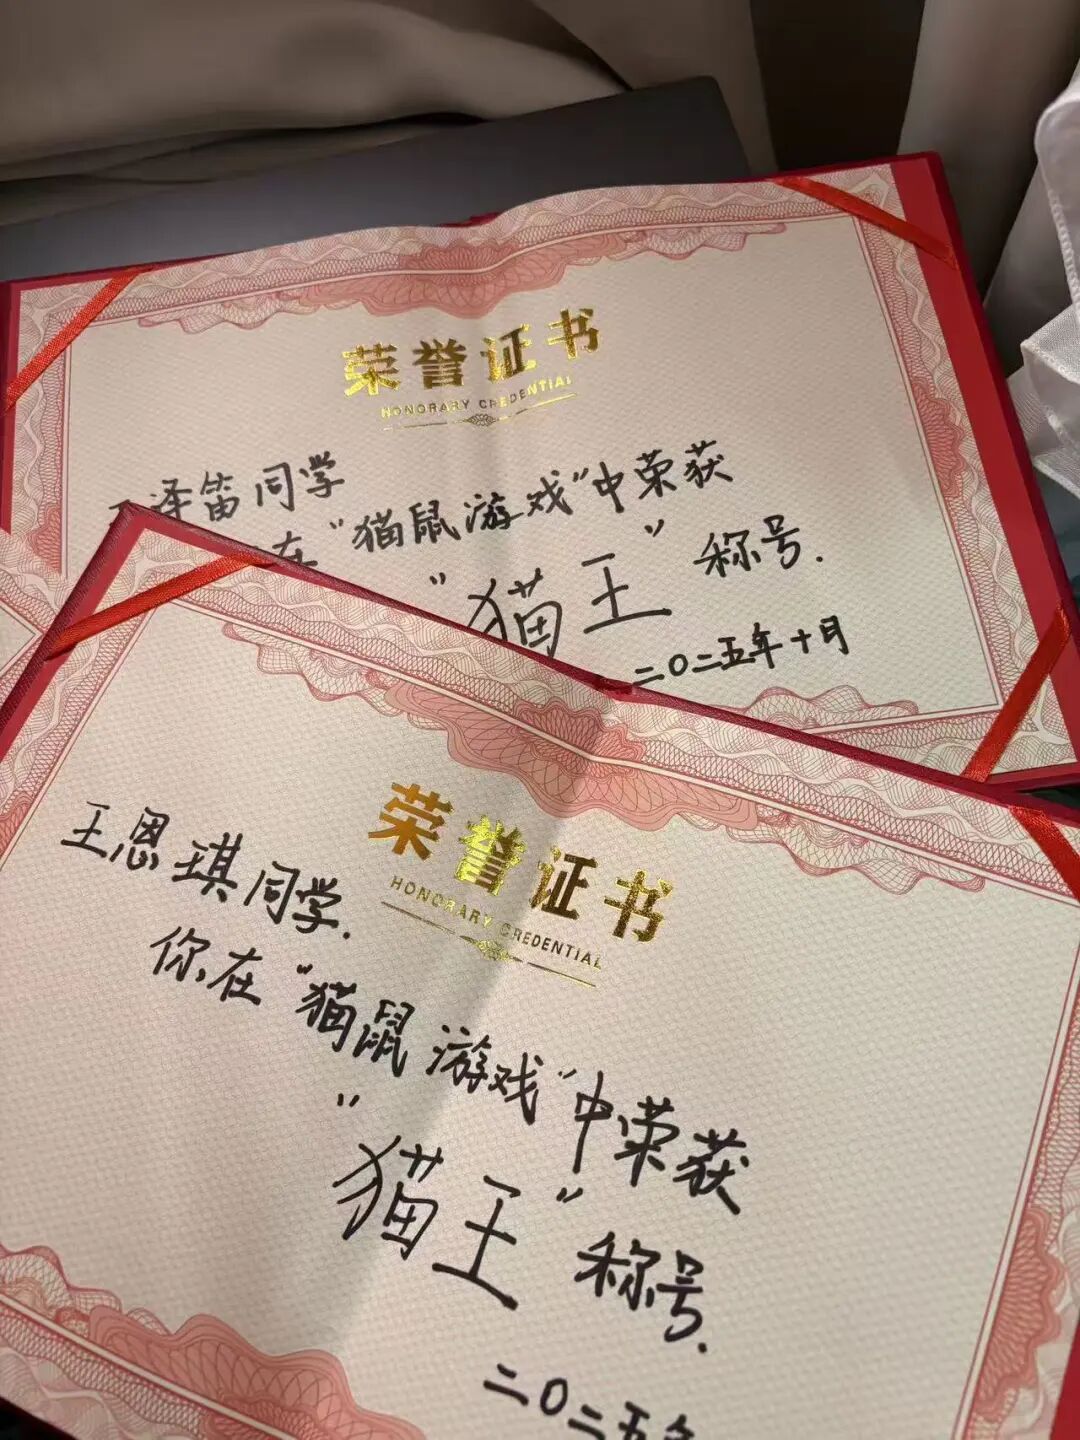 荣誉证书
HONORARY CREDENTIAL
泽笛同学
在“猫鼠游戏”中荣获
“猫王”称号.
二〇二五年十月
荣誉证书
HONORARY CREDENTIAL
王恩琪同学.
你在“猫鼠游戏”中荣获
“猫王”称号.
二〇二五年